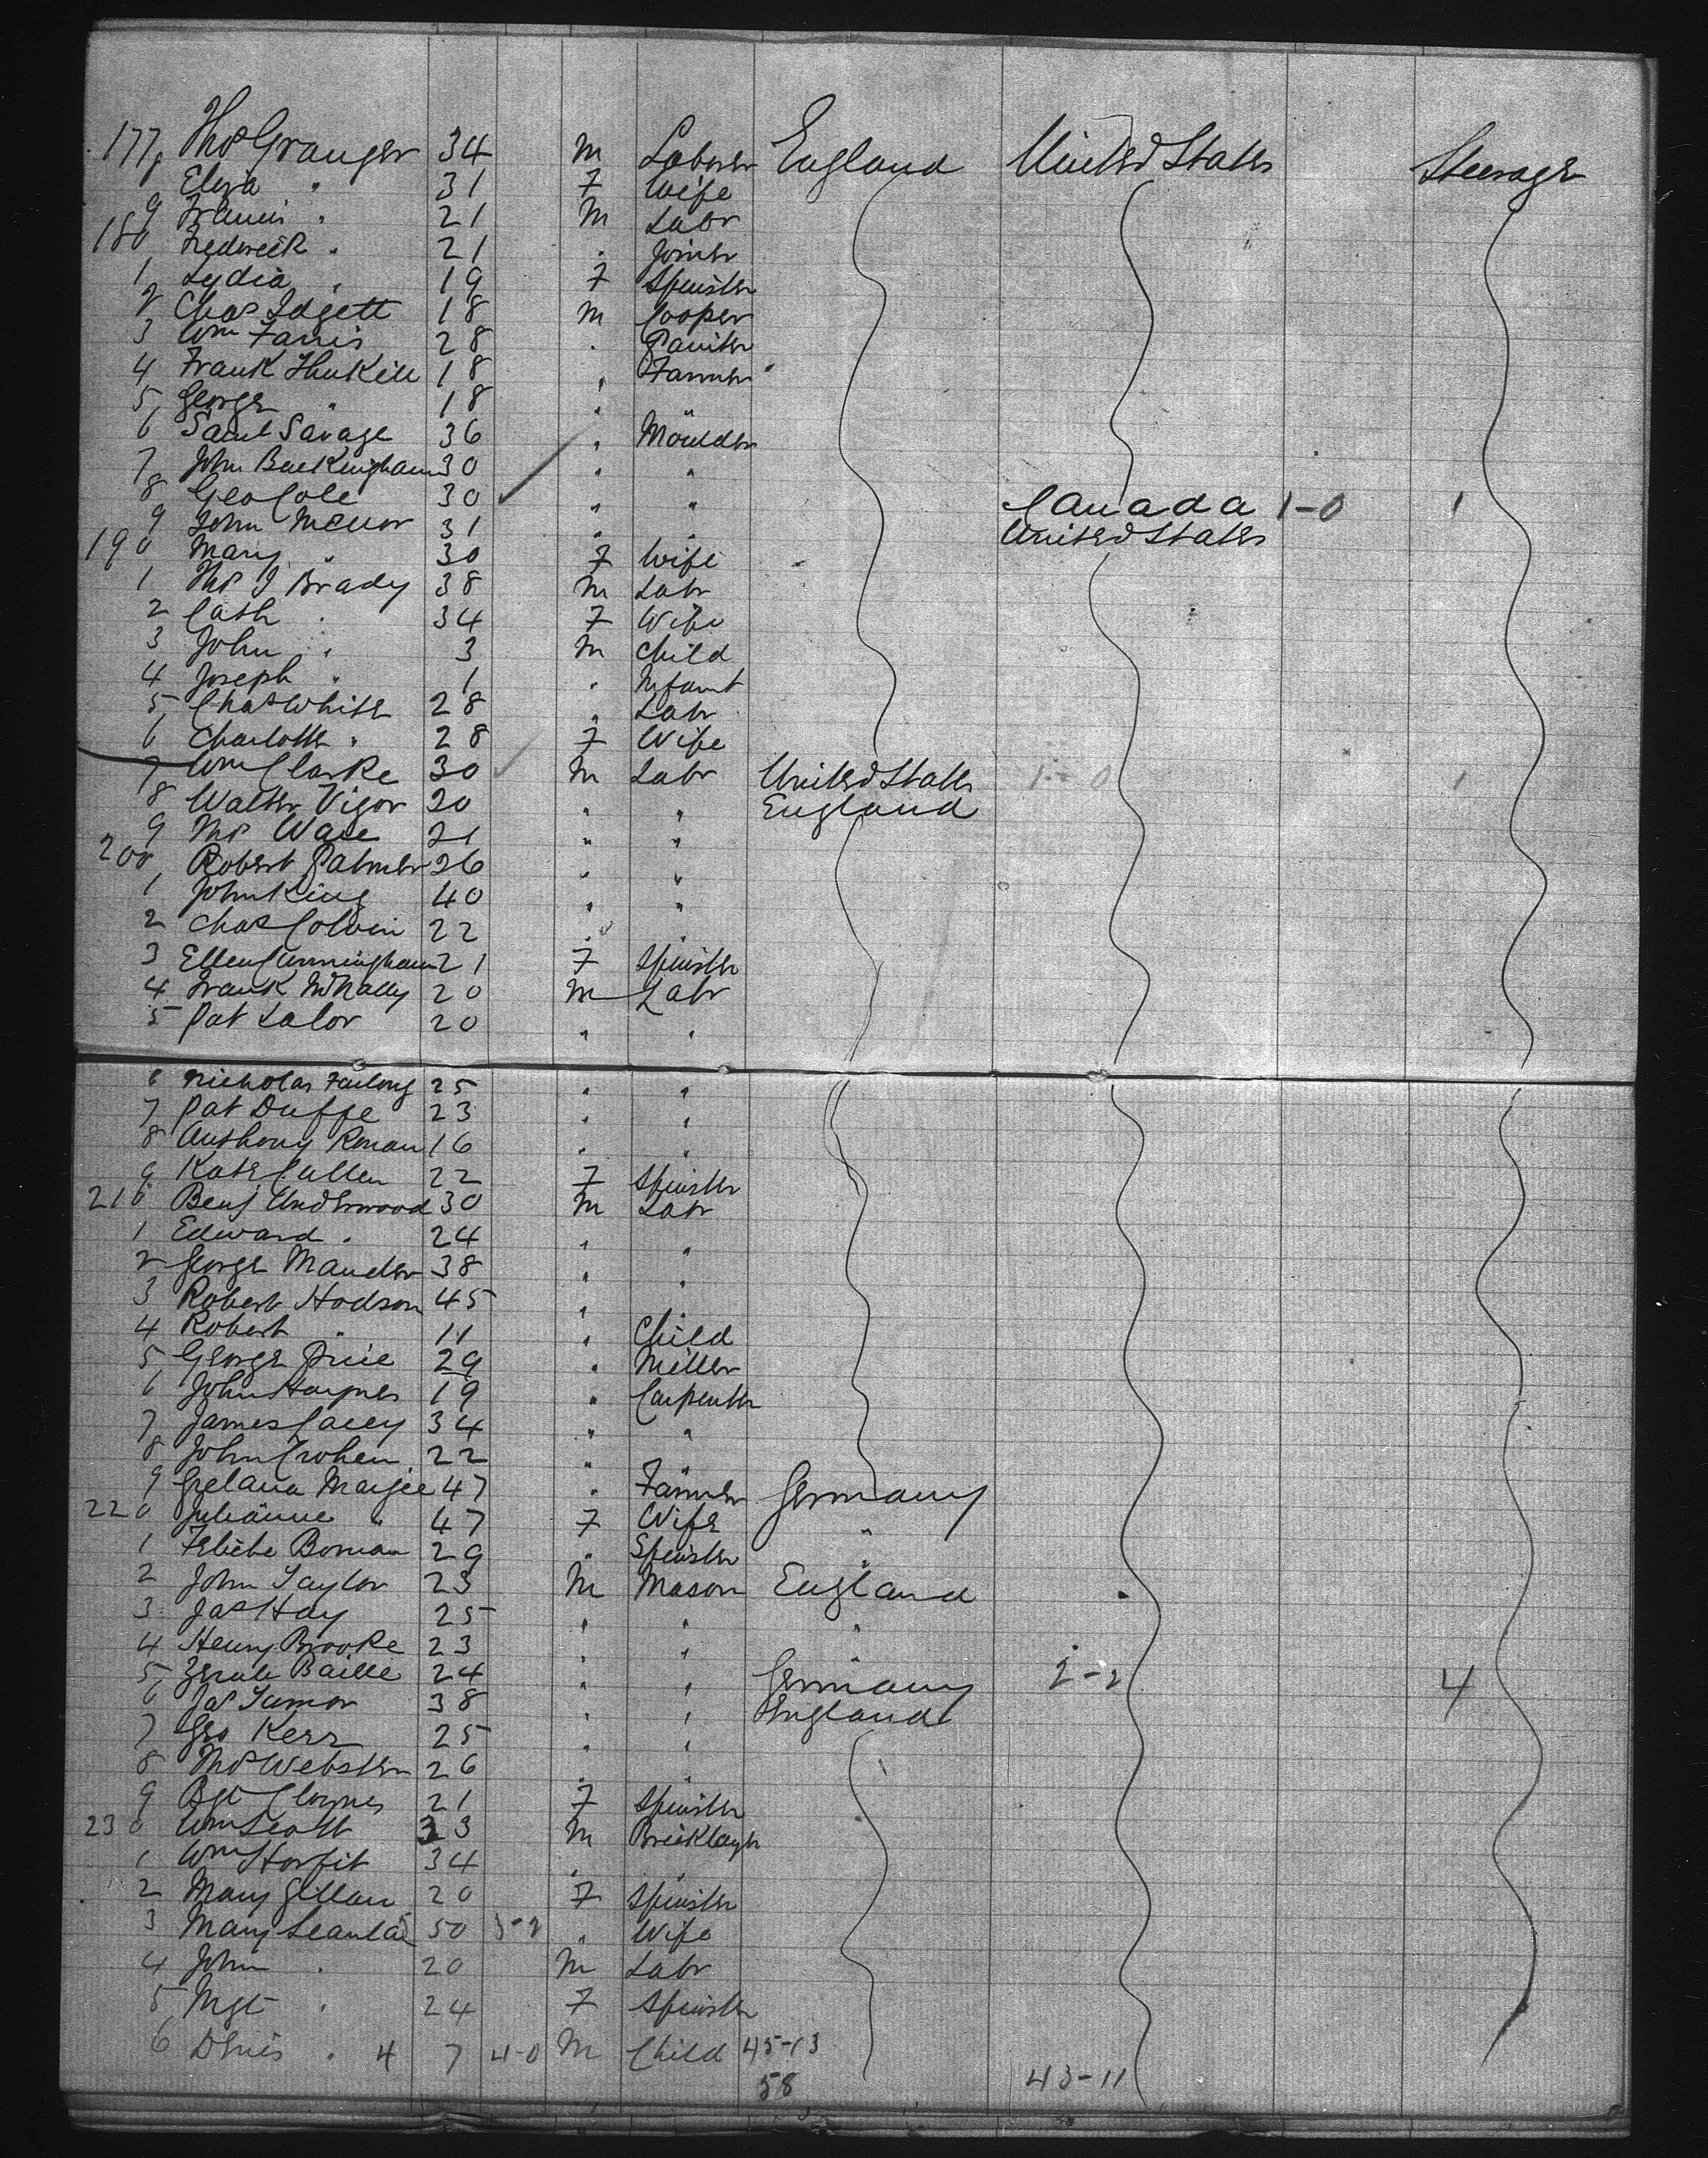 177 Thos Granger 34 M Laborer England United States Steerage
8 Eliza " 31 F Wife
9 Francis " 21 M Labr
180 Frederick " 21 " Joiner
1 Lydia " 19 F Spinster
2 Chas Idgett 18 M Cooper
3 Wm Farris 28 " Painter
4 Frank 18 " Farmer
5 George " 18 " "
6 Saml Savage 36 " Moulder
7 John Buckingham 30 " "
8 Geo Cole 30 " " Canada 1-0 1
9 John 31 " " United States
190 Mary " 30 F Wife
1 Thos J Brady 38 M Labr
2 Cath " 34 F Wife
3 John " 3 M Child
4 Joseph " 1 " Infant
5 Chas White 28 " Labr
6 Charlotte " 28 F Wife
7 Wm Clarke 30 M Labr United States 1-0 1
8 Walter Vigor 20 " " England
9 Thos Ware 21 " "
200 Robert Palmer 26 " "
1 John King 40 " "
2 Chas Colvin 22 " "
3 Ellen Cunningham 21 F Spinster
4 Frank McNally 20 M Labr
5 Pat Lalor 20 " "
6 Nicholas Furlong 25 " "
7 Pat Duffe 23 " "
8 Anthony Ronan 16 " "
9 Kate Cullen 22 F Spinster
210 Benj Underwood 30 M Labr
1 Edward " 24 " "
2 George Mander 38 " "
3 Robert Hodson 45 "
4 Robert " 11 " Child
5 George Price 29 " Miller
6 John Haynes 19 " Carpenter
7 James Lacey 34 " "
8 John Crohen 22 " "
9 47 " Farmer Germany
220 Julianne " 47 F Wife "
1 Boman 29 " Spinster "
2 John Taylor 23 M Mason England
3 Jas Hay 25 " " "
4 Henry Brooke 23 " "
5 Baille 24 " " Germany 2-2 4
6 Jas 38 " " England
7 Geo Kerr 25 " "
8 Thos Webster 26 " "
9 Bgt Cloynes 21 F Spinster
230 Wm Scott 33 M Bricklayer
1 Wm Horfit 34 " "
2 Mary Gillan 20 F Spinster
3 Mary Scanlan 50 3-2 " Wife
4 John " 20 M Labr
5 Mgt " 24 F Spinster
6 Denis " 4 7 4-0 M Child 45-13
58 43-11